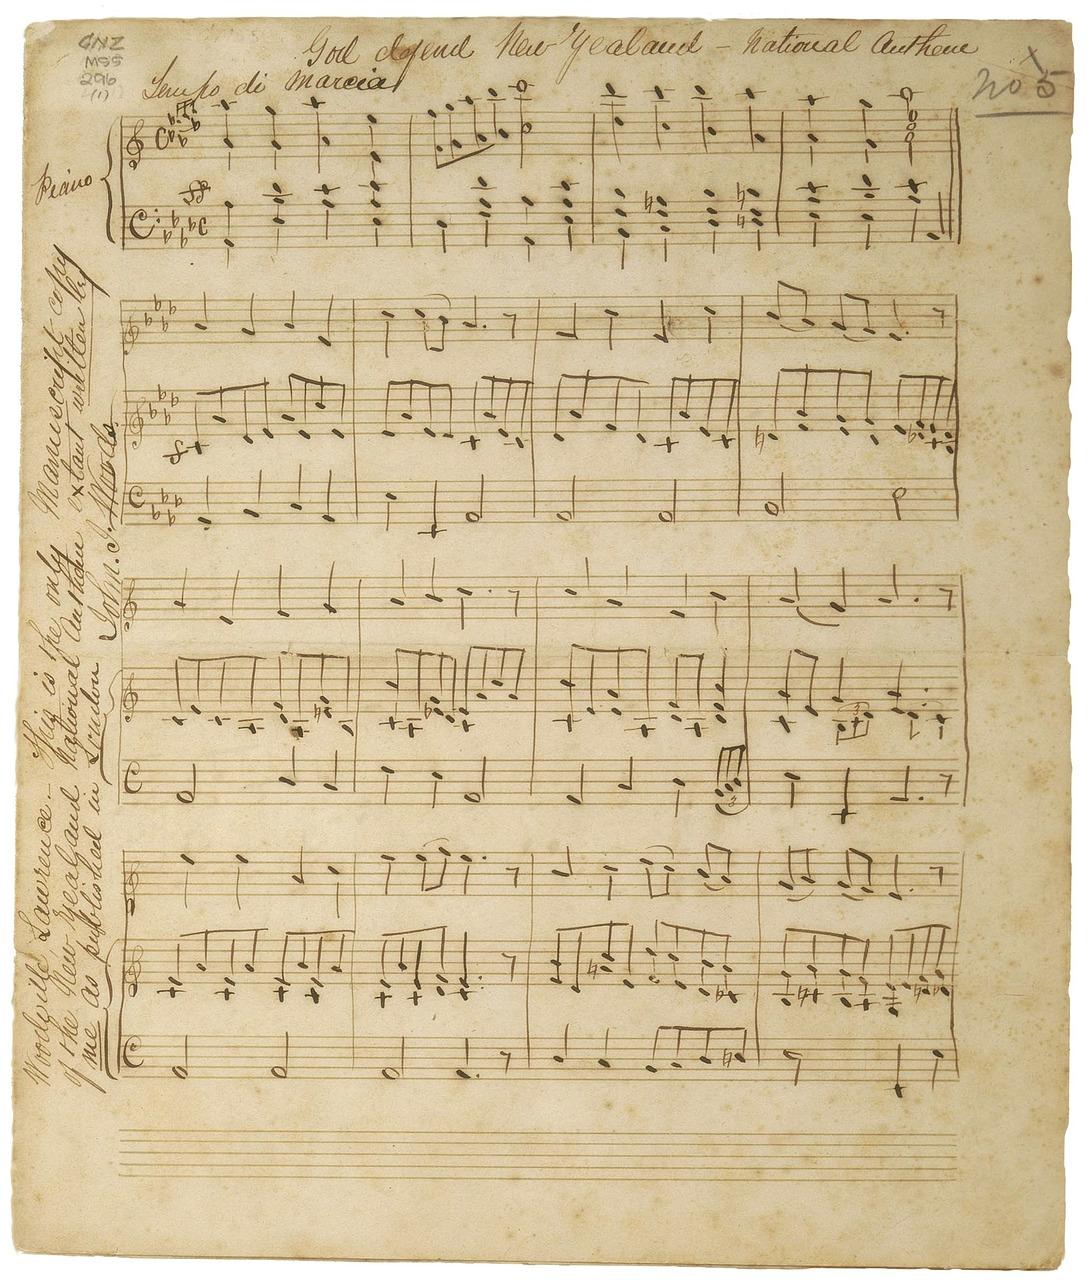 God defend New Zealand - National Anthem
GNZ
MSS
296
(1)
No 5
Tempo di Marcia
Piano
ff
Woodville Lawrence. This is the only Manuscript copy
of the New Zealand National Anthem extant written by
me as published in London John. J. Woods.
3
3